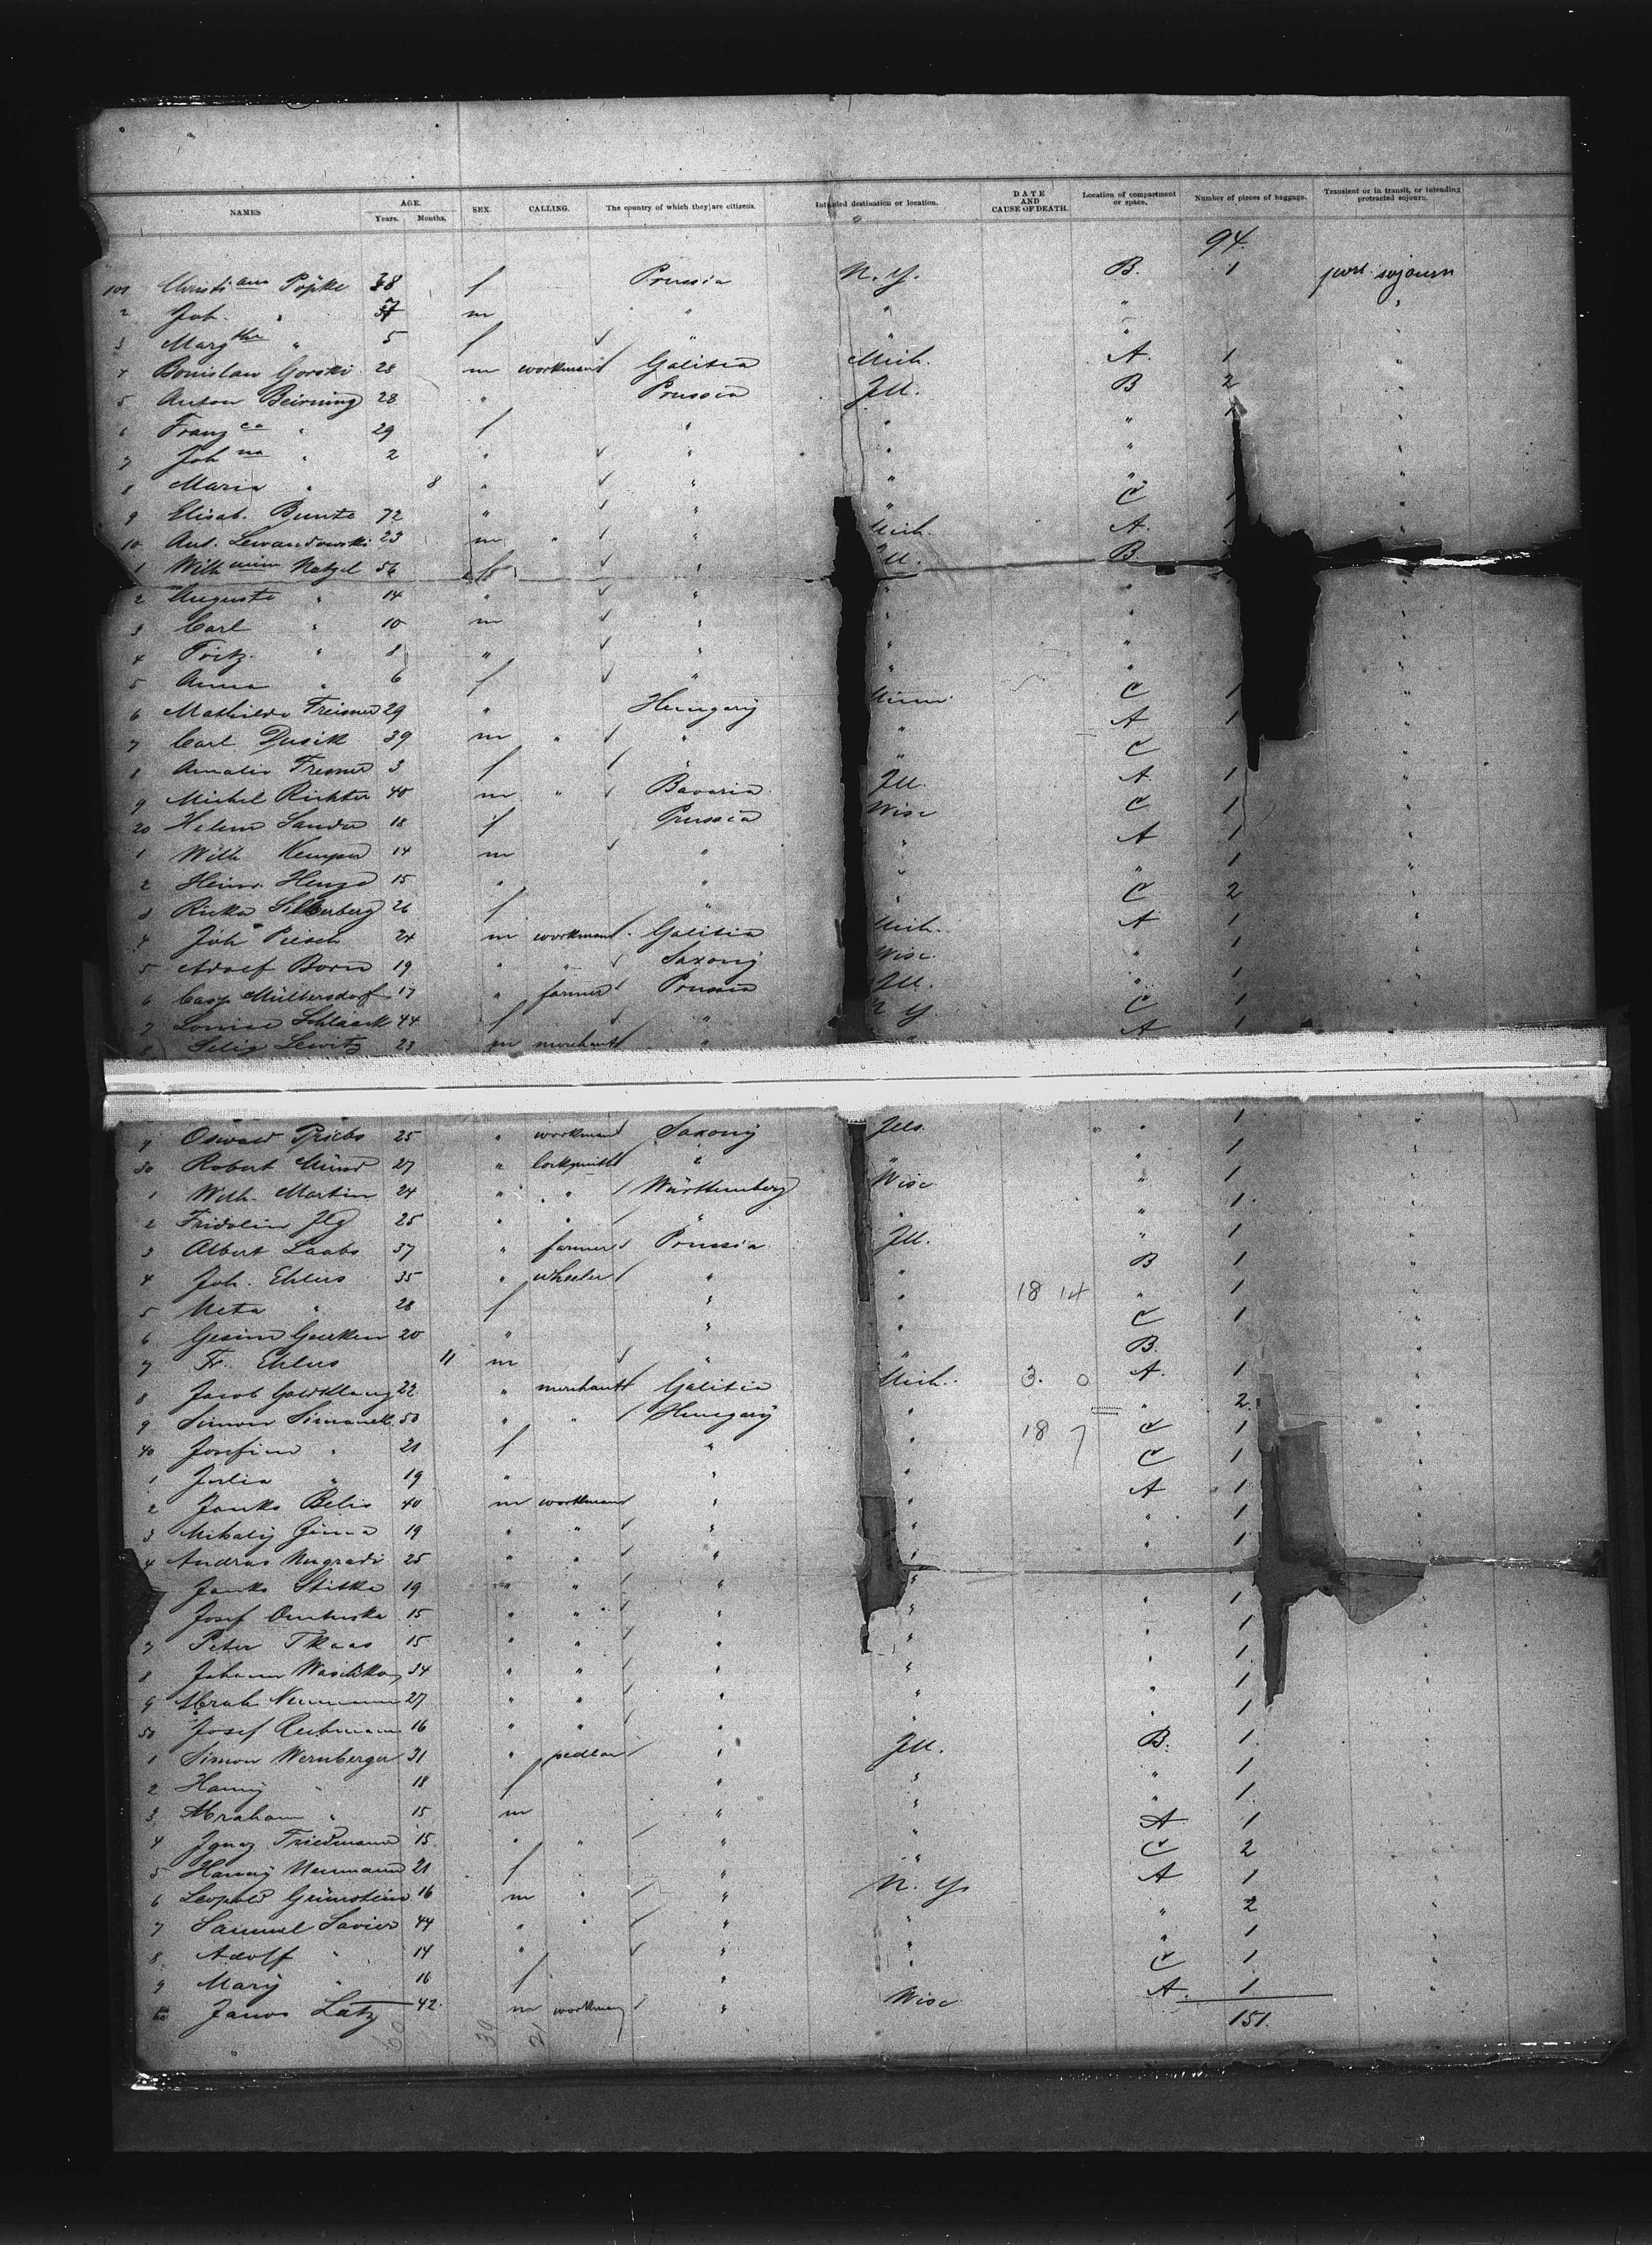 NAMES AGE. Years. Months. SEX. CALLING. The country of which they are citizens. Intended destination or location. DATE AND CAUSE OF DEATH. Location of compartment or space. Number of pieces of baggage. Transient or in transit, or intending protracted sojourn.
94.
101 Christiane Pöpke 38 f Prussia N. Y. B. 1 sojourn
2 Joh. " m " " "
3 Margthe " 5 f " " "
4 Bonislaw Gorski 28 m workman Galitia Mich. A. 1 "
5 Anton Beirning 28 " Prussia Ill. B 2 "
6 Franzca " 29 f " " " 1 "
7 Johna " 2 " " " " "
8 Maria " 8 " " " " "
9 Elisab. Bunte 72 " " C 1 "
10 Ant. Lewandowski 23 m " " Mich. A. 1 "
1 Wilhmine Netzel 56 f " Ill. B.
2 Auguste " 14 " " " " "
3 Carl " 10 m " " " "
4 Fritz. " 8 " " " " "
5 Anna " 6 f " " " "
6 Mathilde Freisner 29 " Hungary Minn. C 1 "
7 Carl Dusik 39 m " " " A 1 "
8 Amalie 3 f " " C "
9 Michel Richter 40 m " Bavaria Ill. A 1 "
20 Helene Sander 18 f Prussia Wisc C 1 "
1 Wilh Kemper 14 m " " A 1 "
2 Heinr. Henze 15 " " " " 1 "
3 Ricka Silberberg 26 f " " C 2 "
4 Joh 24 m workman Galitia Mich. A 1 "
5 Adolf Born 19 " " Saxony Wisc. " 1 "
6 Casp Müllersdorf 17 " farmer Prussia Ill. " 1 "
7 Louise Schlaack 44 f " N Y C 1 "
8 Selig Lewitz 23 m merchant " " A 1
9 Oswald 25 " workman Saxony Ills. " 1
30 Robert 27 " locksmith " " " 1
1 Wilh. Martin 24 " " Württemberg Wisc " 1
2 Fridolin Ilg 25 " " " " " 1
3 Albert Laabs 37 " farmer Prussia Ill. " 1
4 Joh. Ehlers 35 " wheeler " " B 1
5 Meta " 28 f " " 18 14 " 1
6 Gesine Geerken 20 " " " C 1
7 Fr. Ehlers 11 m " " B. "
8 Jacob Goldklang 22 " merchant Galitia Mich. 3. 0 A. 1 "
9 Simon 50 " " Hungary " " 2. "
40 Josefine " 21 f " " 18 7 C 1 "
1 Julia " 19 " " " C 1 "
2 Janko Belis 40 m workman " " A 1 "
3 Mihaly 19 " " " " " 1
4 Andras Nugradi 25 " " " " " 1
Janko Stitka 19 " " " "
Josef 15 " " " " " 1
7 Peter Tkaas 15 " " " " " 1
8 Johann 34 " " " " " 1
9 Abrah Neumann 27 " " " " " 1
50 Josef 16 " " " " " 1
1 Simon Wernberger 31 " pedlar " Ill. B. 1
2 Hanny " 18 f " " " 1
3 Abraham " 15 m " " " 1
4 Ignaz Friedmann 15 " " " " A 1
5 Hanny Neumann 21 f " " C 2
6 Leopold Grünstein 16 m " " N. Y. A 1
7 Samuel Savier 44 " " " " " 2
8 Adolf " 14 " " " " 1
9 Mary " 16 f " " C 1
60 Janos Latz 42 m workman " Wisc A. 1
60 39 21 151.